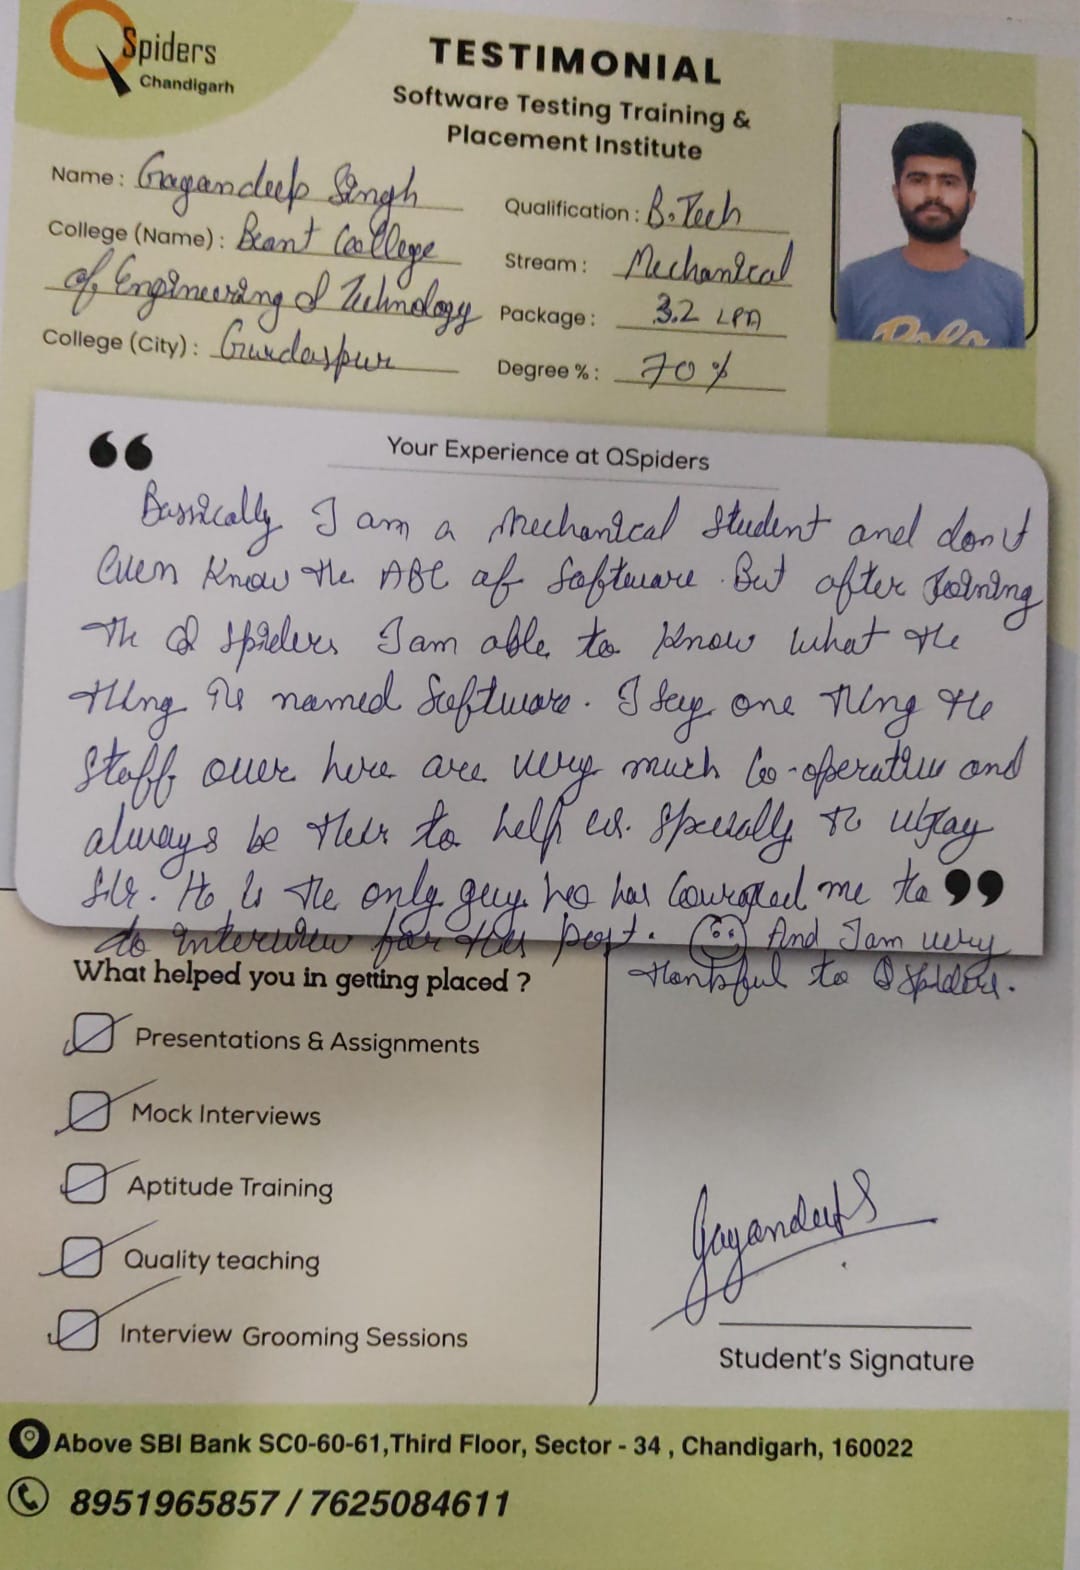 QSpiders
Chandigarh
TESTIMONIAL
Software Testing Training &
Placement Institute
Name : Gagandeep Singh
College (Name) : Beant College
of Engineering & Technology
College (City) : Gurdaspur
Qualification : B.Tech
Stream : Mechanical
Package : 3.2 LPA
Degree % : 70 %
Your Experience at QSpiders
Bassically I am a Mechanical Student and don't
even know the ABC of Software. But after Joining
the Q Spiders I am able to know what the
thing is named Software. I say one thing the
Staff over here are very much Co-operative and
always be their to help us. Specially to
Sir. He is the only guy who has me to
do interview for this post. And I am very
thankful to Q Spiders.
What helped you in getting placed ?
Presentations & Assignments
Mock Interviews
Aptitude Training
Quality teaching
Interview Grooming Sessions
GagandeepS
Student's Signature
Above SBI Bank SC0-60-61,Third Floor, Sector - 34 , Chandigarh, 160022
8951965857 / 7625084611